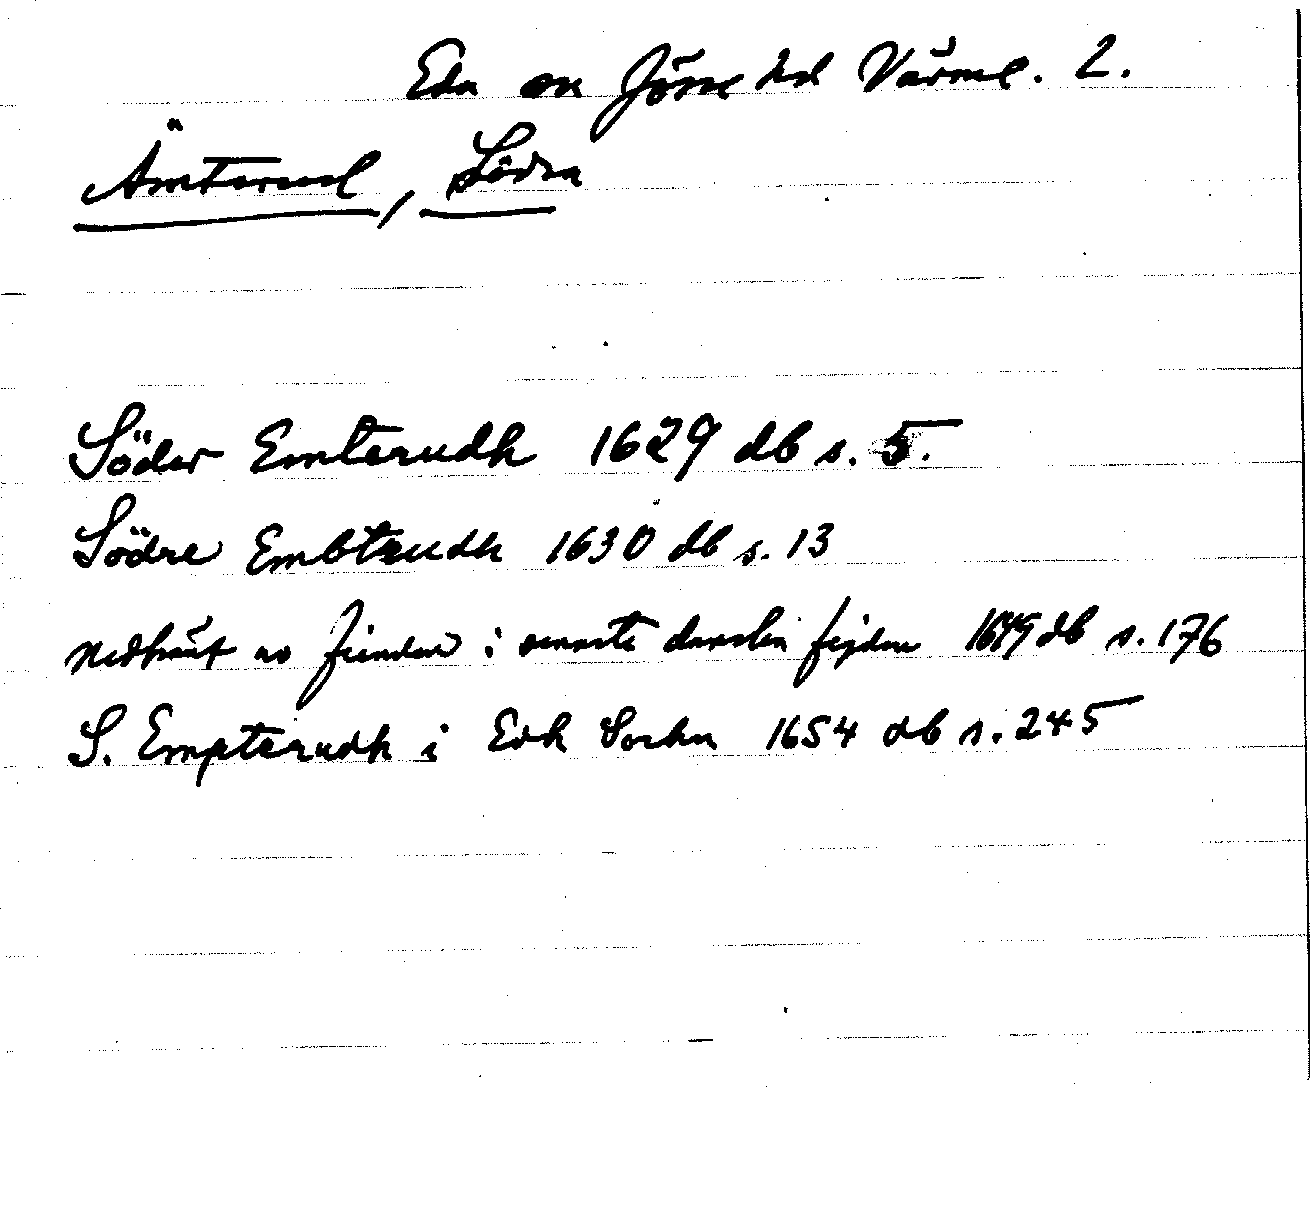 Eda sn Jösse hd Värml. 2.
Ämterud, Södra
Söder Emterudh 1629 db s. 5.
Södre Embterudh 1630 db s. 13
nedbränt av fienden i senaste danska fejden 1649 db s. 176
S. Empterudh i Edh Sochn 1654 db s. 245